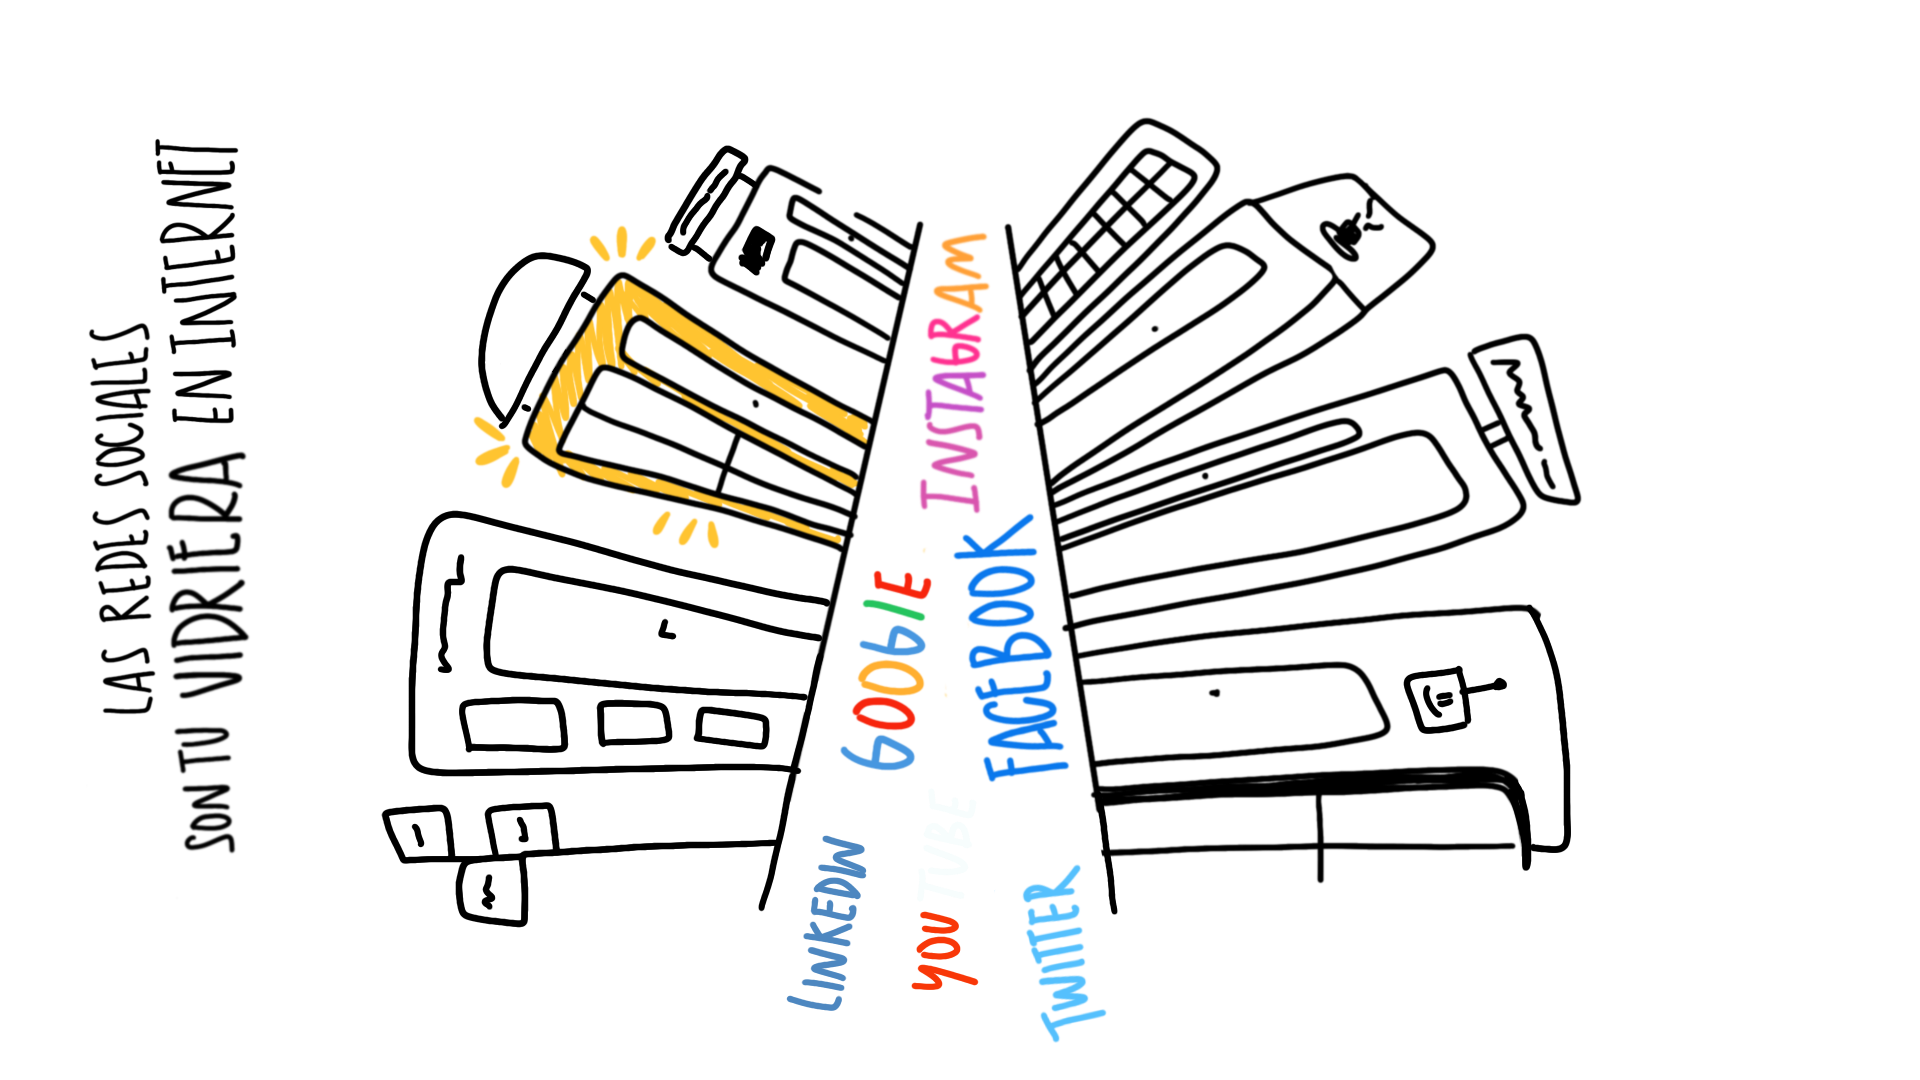 LAS REDES SOCIALES
SON TU VIDRIERA EN INTERNET
INSTAGRAM
GOOGLE
FACEBOOK
LINKEDIN
YOU TUBE
TWITTER